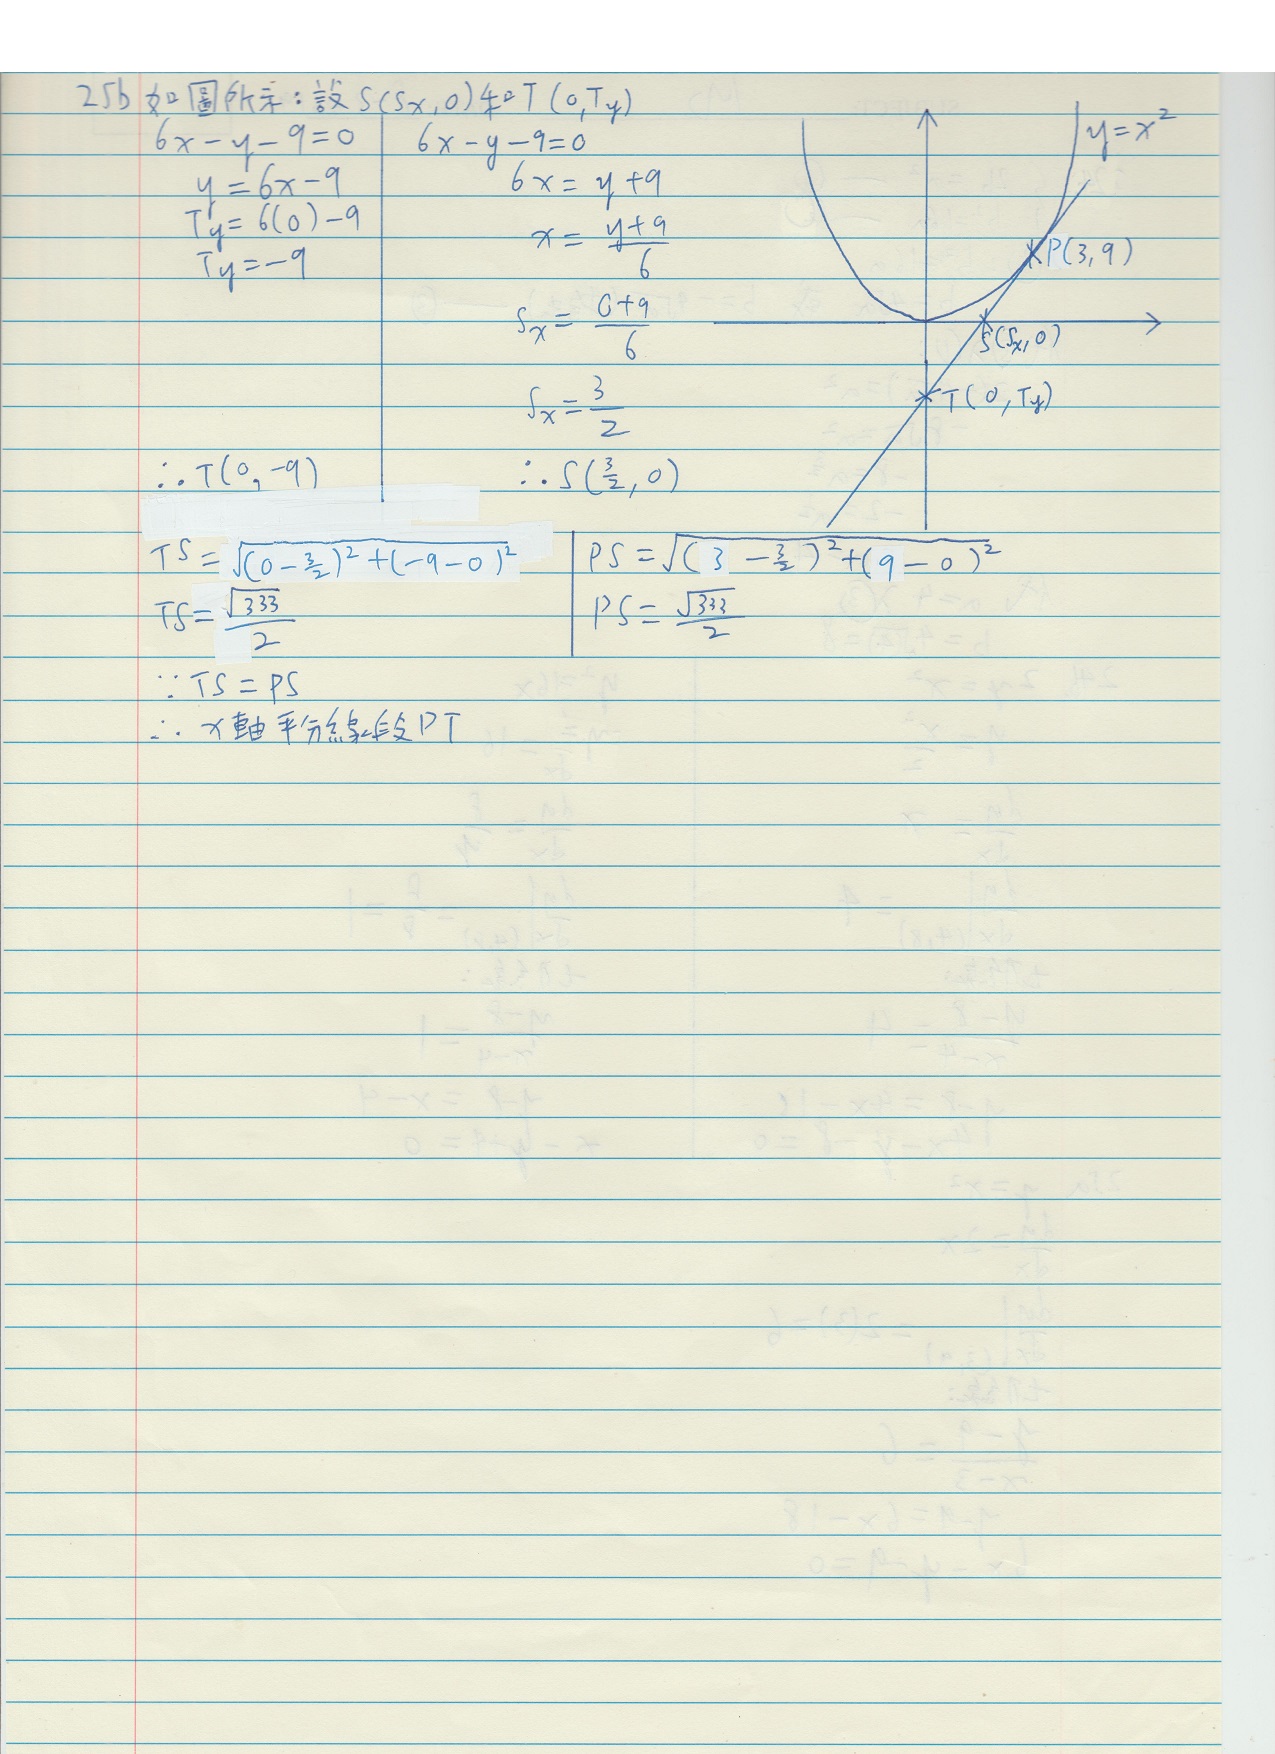 25b 如圖所示：設 S(Sx, 0) 和 T(0, Ty)
6x - y - 9 = 0
y = 6x - 9
Ty = 6(0) - 9
Ty = -9
∴ T(0, -9)
6x - y - 9 = 0
6x = y + 9
x = (y+9)/6
Sx = (0+9)/6
Sx = 3/2
∴ S(3/2, 0)
y = x²
P(3, 9)
S(Sx, 0)
T(0, Ty)
TS = √((0 - 3/2)² + (-9 - 0)²)
TS = √333/2
PS = √((3 - 3/2)² + (9 - 0)²)
PS = √333/2
∵ TS = PS
∴ x 軸平分線段 PT